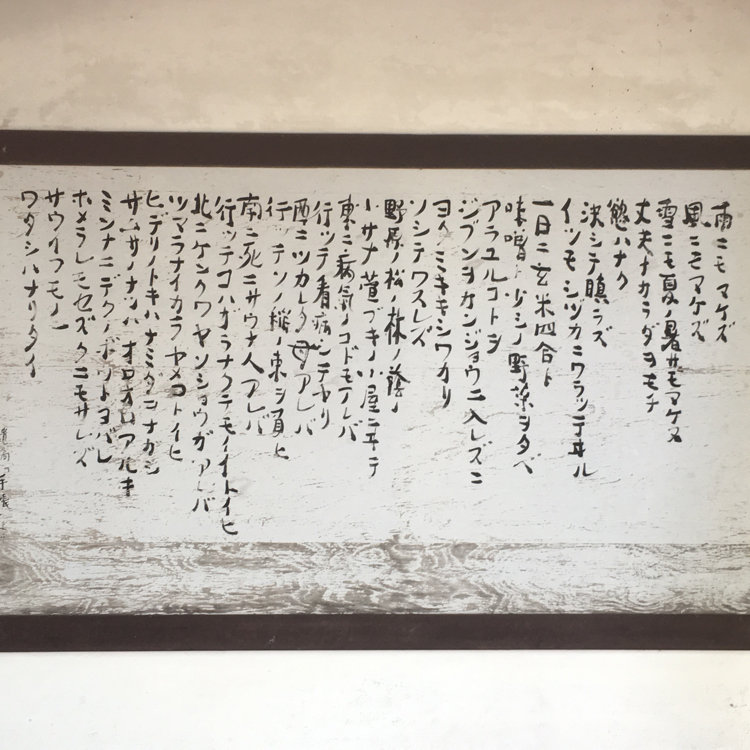 雨ニモマケズ
風ニモマケズ
雪ニモ夏ノ暑サニモマケヌ
丈夫ナカラダヲモチ
慾ハナク
決シテ瞋ラズ
イツモシヅカニワラッテヰル
一日ニ玄米四合ト
味噌ト少シノ野菜ヲタベ
アラユルコトヲ
ジブンヲカンジョウニ入レズニ
ヨクミキキシワカリ
ソシテワスレズ
野原ノ松ノ林ノ蔭ノ
小サナ萱ブキノ小屋ニヰテ
東ニ病氣ノコドモアレバ
行ッテ看病シテヤリ
西ニツカレタ母アレバ
行ッテソノ稲ノ束ヲ負ヒ
南ニ死ニサウナ人アレバ
行ッテコハガラナクテモイヽトイヒ
北ニケンクヮヤソショウガアレバ
ツマラナイカラヤメロトイヒ
ヒデリノトキハナミダヲナガシ
サムサノナツハオロオロアルキ
ミンナニデクノボートヨバレ
ホメラレモセズクニモサレズ
サウイフモノニ
ワタシハナリタイ